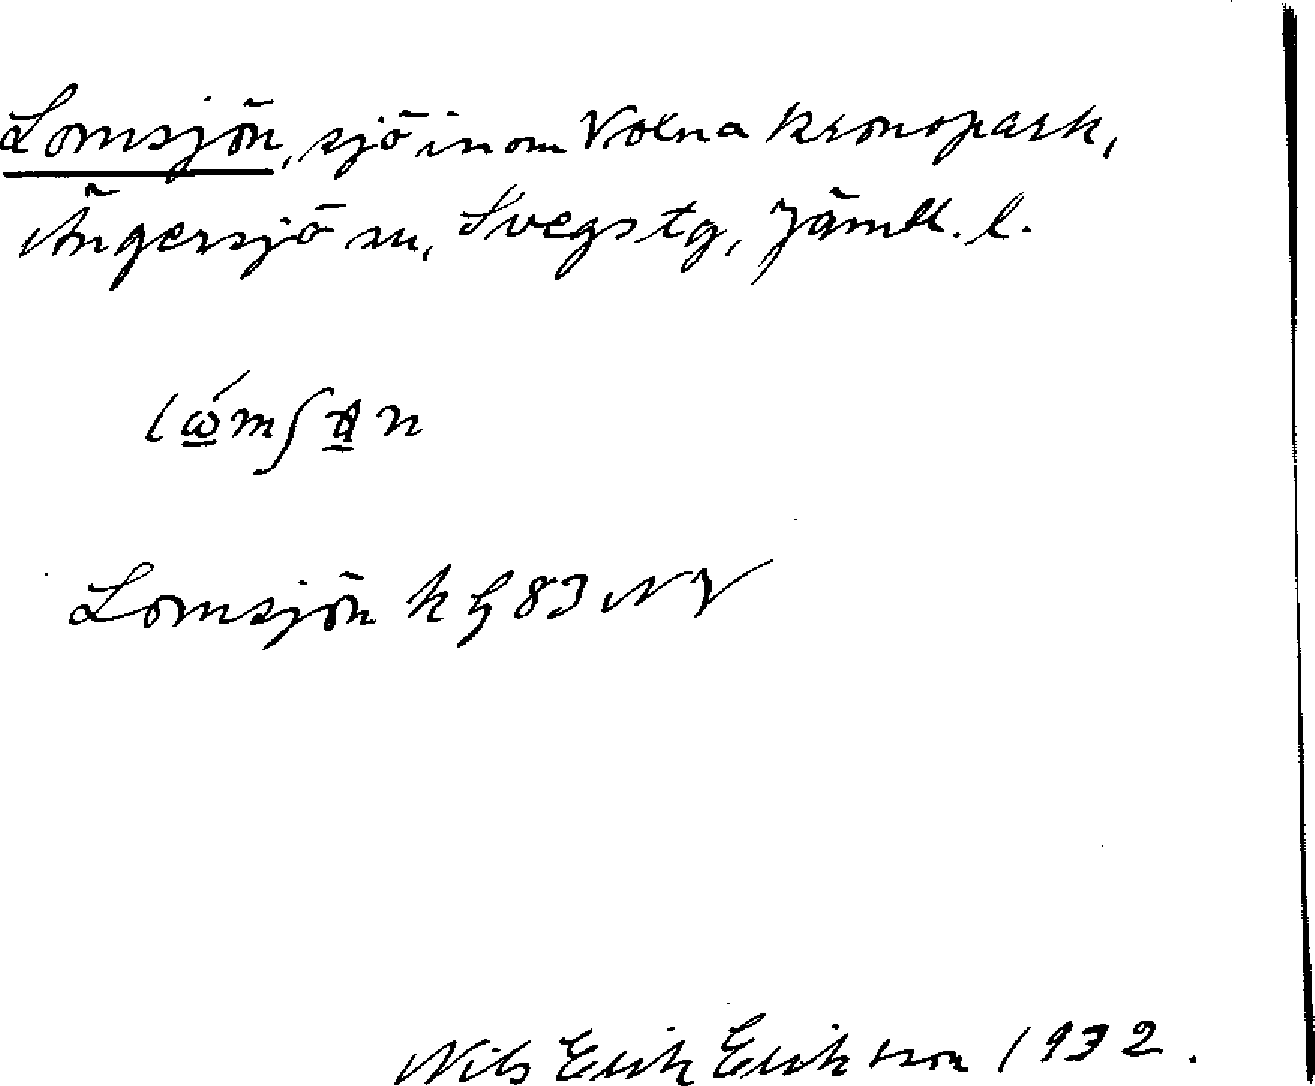 Lomsjön, sjö inom Voxna kronopark,
Ängersjö sn, Svegs tg, Jämtl. l.
Lomsjön k g 83 NV
Nils Erik Erikson 1932.